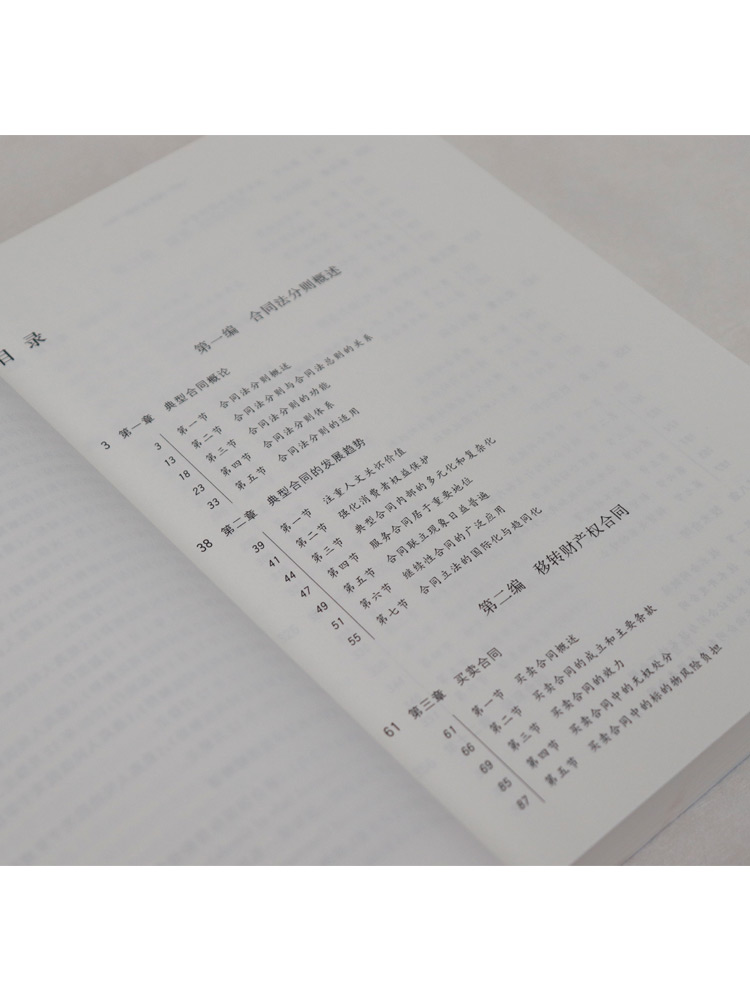 目 录
第一编 合同法分则概述
3 第一章 典型合同概论
3 第一节 合同法分则概述
13 第二节 合同法分则与合同法总则的关系
18 第三节 合同法分则的功能
23 第四节 合同法分则体系
33 第五节 合同法分则的适用
38 第二章 典型合同的发展趋势
39 第一节 注重人文关怀价值
41 第二节 强化消费者权益保护
44 第三节 典型合同内部的多元化和复杂化
47 第四节 服务合同居于重要地位
49 第五节 合同联立现象日益普遍
51 第六节 继续性合同的广泛应用
55 第七节 合同立法的国际化与趋同化
第二编 移转财产权合同
61 第三章 买卖合同
61 第一节 买卖合同概述
66 第二节 买卖合同的成立和主要条款
69 第三节 买卖合同的效力
85 第四节 买卖合同中的无权处分
87 第五节 买卖合同中的标的物风险负担